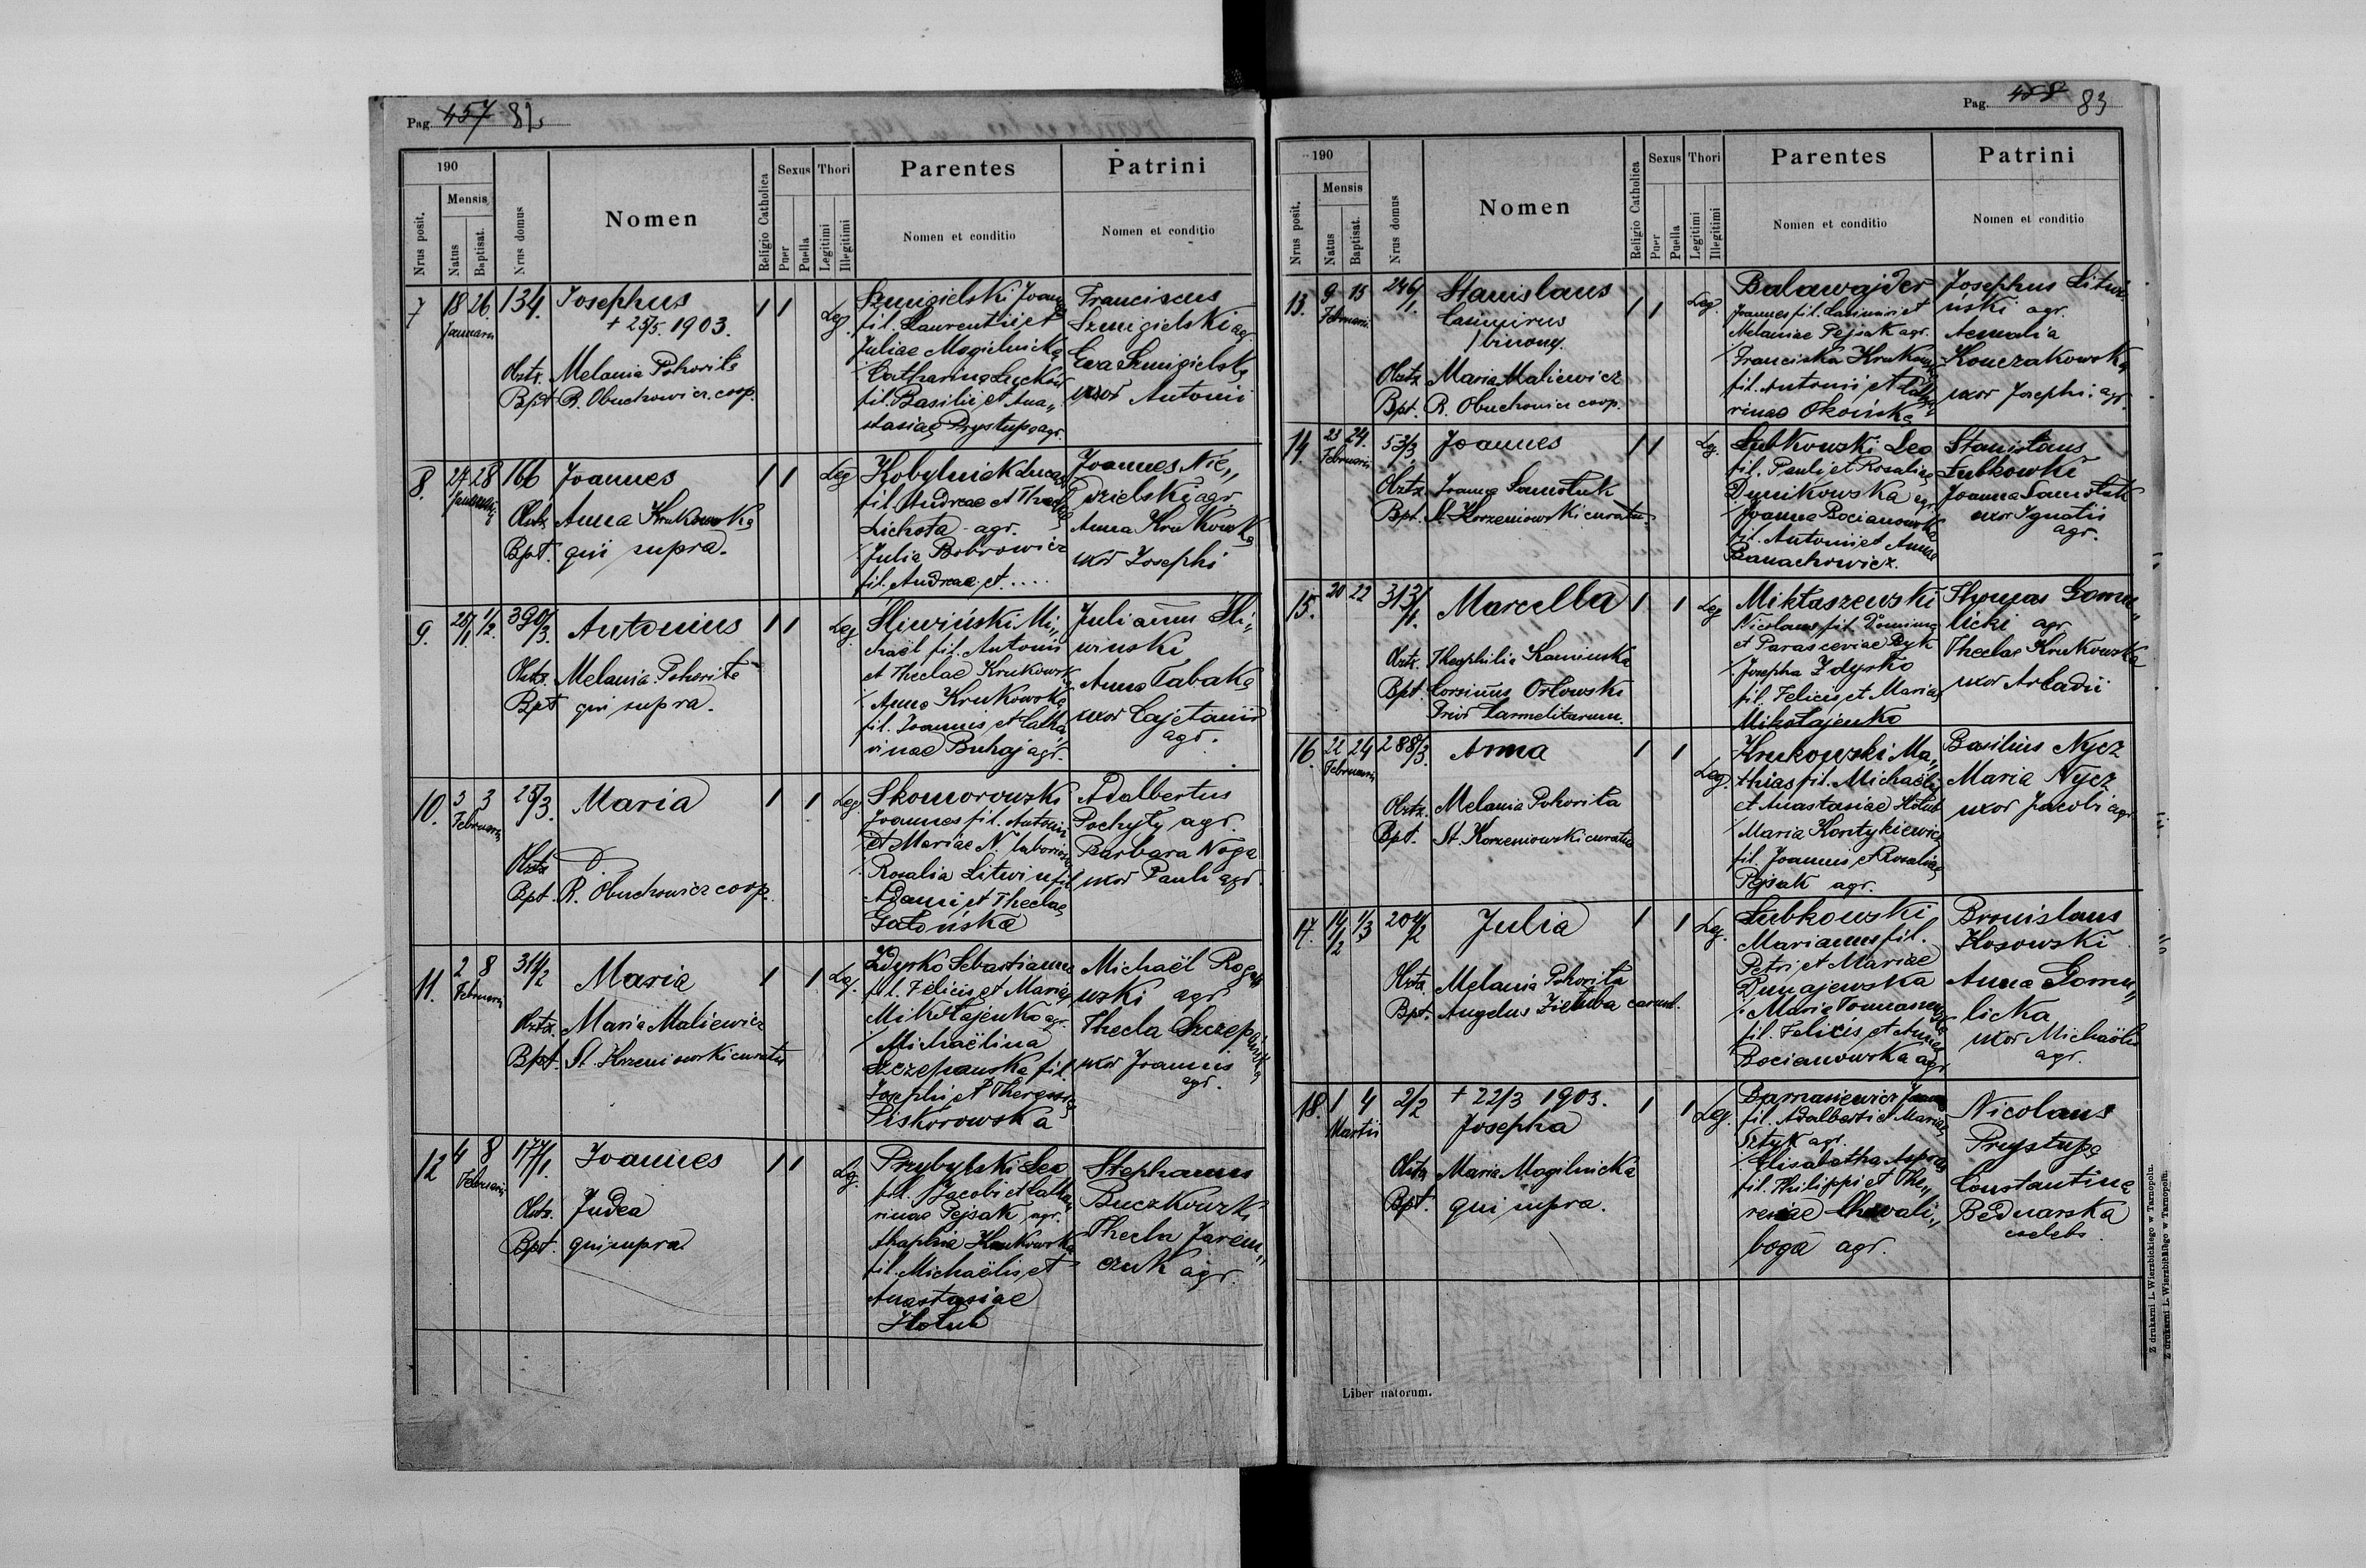 Pag. 457 82
190
Nrus posit.
Mensis
Natus
Baptisat.
Nrus domus
Nomen
Religio Catholica
Sexus
Puer
Puella
Thori
Legitimi
Illegitimi
Parentes
Nomen et conditio
Patrini
Nomen et conditio
7 18 26. 134. Josephus 1 1 Leg.
Januarii
+ 25/5. 1903.
Obstx. Melania Pohorite
Bpt. R. Obuchowicz coop.
Szmigielski Joannes
fil. Laurentii et
Juliae Magielnicka
Catharina Lyckow
fil. Basilii et Ana„
stasiae Prystupa agr.
Franciscus
Szmigielski agr.
Eva Szmigielska
uxor Antonii
8. 24 28 166 Joannes 1 1 Leg
Januarii
Obstx. Anna Krukowska
Bpt. qui supra.
Kobylnick Lucas
fil. Andreae et Theclae
Lichota - agr.
Julia Bobrowicz
fil. Andreae et ....
Joannes Nie„
dzielski agr
Anna Krukowska
uxor Josephi
9. 25/1. 1/2. 390/3. Antonius 1 1 Leg
Obstx. Melania Pohorite
Bpt qui supra.
Śliwiński Mi„
chaël fil. Antonii
et Theclae Krukowska
Anna Krukowska
fil. Joannis et Catha
rinae Buhaj agr.
Julianus Śli„
winski
Anna Tabaka
uxor Cajetanii
agr.
10. 3 3 25/3. Maria 1 1 Leg.
Februarii
Obstx D.
Bpt. R. Obuchowicz coop.
Skomorowski
Joannes fil. Antonii
et Mariae N. laborios
Rosalia Litwin fil
Adami et Theclae
Gałońska
Adalbertus
Pochyły agr.
Barbara Noga
uxor Pauli agr.
11. 2 8 311/2 Maria 1 1 Leg.
Februarii
Obstx. Maria Maliewicz
Bpt. St. Korzeniowski curatus
Zdyrko Sebastianus
fil. Felicis et Mariae
Mikołajenko agr.
Michaëlina
Szczepanska fil.
Josephi et Theressiae
Piskorowska
Michaël Rogale
wski agr
Thecla Szczepańska
uxor Joannis
agr.
12 4 8 177/1. Joannes 1 1 Leg.
Februarii
Obstx. Judea
Bpt. qui supra.
Przybylski Leo
fil. Jacobi et Catha
rinae Pejsak, agr.
Krukowska
fil. Michaëlis et
Anastasiae
Hołub
Stephanus
Buczkowski
Thecla Jarem„
czuk agr.
Pag. 458 83
190
Nrus posit.
Mensis
Natus
Baptisat.
Nrus domus
Nomen
Religio Catholica
Sexus
Puer
Puella
Thori
Legitimi
Illegitimi
Parentes
Nomen et conditio
Patrini
Nomen et conditio
13. 9 15 246/1. Stanislaus 1 1 Leg.
Februarii
Casimirus
Obstx Maria Maliewicz
Bpt. R. Obuchowicz coop.
Balawajder
Joannes fil. Casimiri et
Melaniae Pejsak agr.
Franciska Krukowska
fil. Antonii et Catha
rinae Okoińska
Josephus Litwi
ński agr.
Aemalia
Konczakowska
uxor Josephi. agr.
14. 23 24. 53/3. Joannes 1 1 Leg.
Februarii
Obstx Joanna Samołuk
Bpt. St. Korzeniowski curatus
Łubkowski Leo
fil. Pauli et Rosaliae
Dymikowska agr
Joanna Bocianowska
fil. Antonii et Annae
Banachowicz.
Stanislaus
Łubkowski
Joanna Samołuk
uxor Ignatii
agr.
15. 20 22 313/1. Marcella 1 1 Leg
Obstx. Theophilia Kaminska
Bpt. Corsinus Orłowski
Prior Carmelitarum.
Miktaszewski
Nicolaus fil. Dominici
et Parasceviae Pyk
Josepha Zdyrko
fil. Felicis et Mariae
Mikołajenko
Thomas Gomu„
licki agr
Theclae Krukowska
uxor Arcadii
16. 22 24 288/3. Anna 1 1 Leg.
Februarii
Obstx. Melania Pohorita
Bpt. St. Korzeniowski curatus
Krukowski Ma„
thias fil. Michaëlis
et Anastasiae Hołub
Maria Kontykiewicz
fil. Joannis et Rosaliae
Pejsak agr.
Basilius Nycz
Maria Nycz
uxor Jacobi agr
17. 14/2 1/3 204/2 Julia 1 1 Leg.
Obstx. Melania Pohorita
Bpt. Angelus Zięmba carmel.
Łubkowski
Marianus fil.
Petri et Mariae
Dunajewska
Maria Tomaszewska
fil. Felicis et Annae
Bocianowska agr
Bronislaus
Kosowski
Anna Gomu„
licka
uxor Michaëlis
agr.
18. 1 4 2/2 + 22/3 1903. 1 1 Leg.
Martii
Josepha
Obstx Maria Magilnicka
Bpt. qui supra.
Barnasiewicz Joannes
fil. Adalberti et Mariae
Sztyk agr.
Elisabetha Aspras
fil. Philippi et The„
resiae Chwali„
boga agr.
Nicolaus
Prystupa
Constantina
Bednarska
caelebs
Liber natorum.
Z drukarni L. Wierzbickiego w Tarnopolu.
Z drukarni L. Wierzbickiego w Tarnopolu.